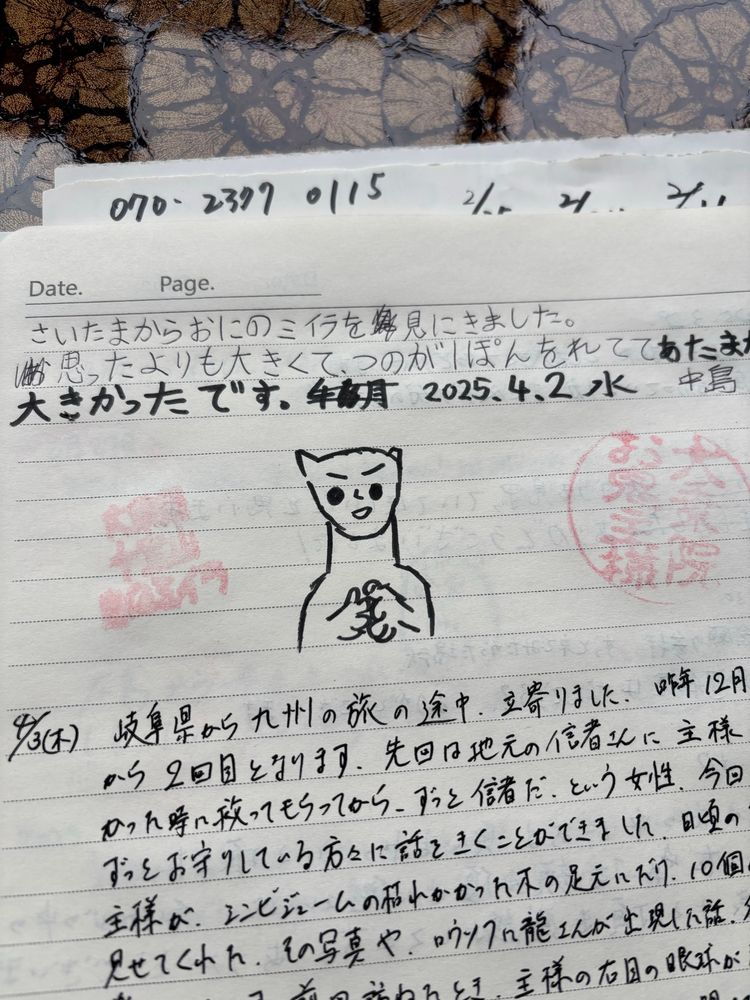 070-2377 0115
Date. Page.
さいたまからおにのミイラを見にきました。
思ったよりも大きくて、つのが1ぽんをれててあたまが
大きかったです。 2025.4.2 水 中島
4/3(木) 岐阜県から九州の旅の途中、立寄りました、昨年12月
から2回目となります、先回は地元の信者さんに主様
かった時に救ってもらってから、ずっと信者だ、という女性、今回
ずっとお守りしている方々に話をきくことができました、日頃の
主様が、シンビジュームの枯れかかった木の足元に 10個
見せてくれた、その写真や、ロウソクに龍さんが出現した話、
前回訪ねたとき、主様の右目の眼球が